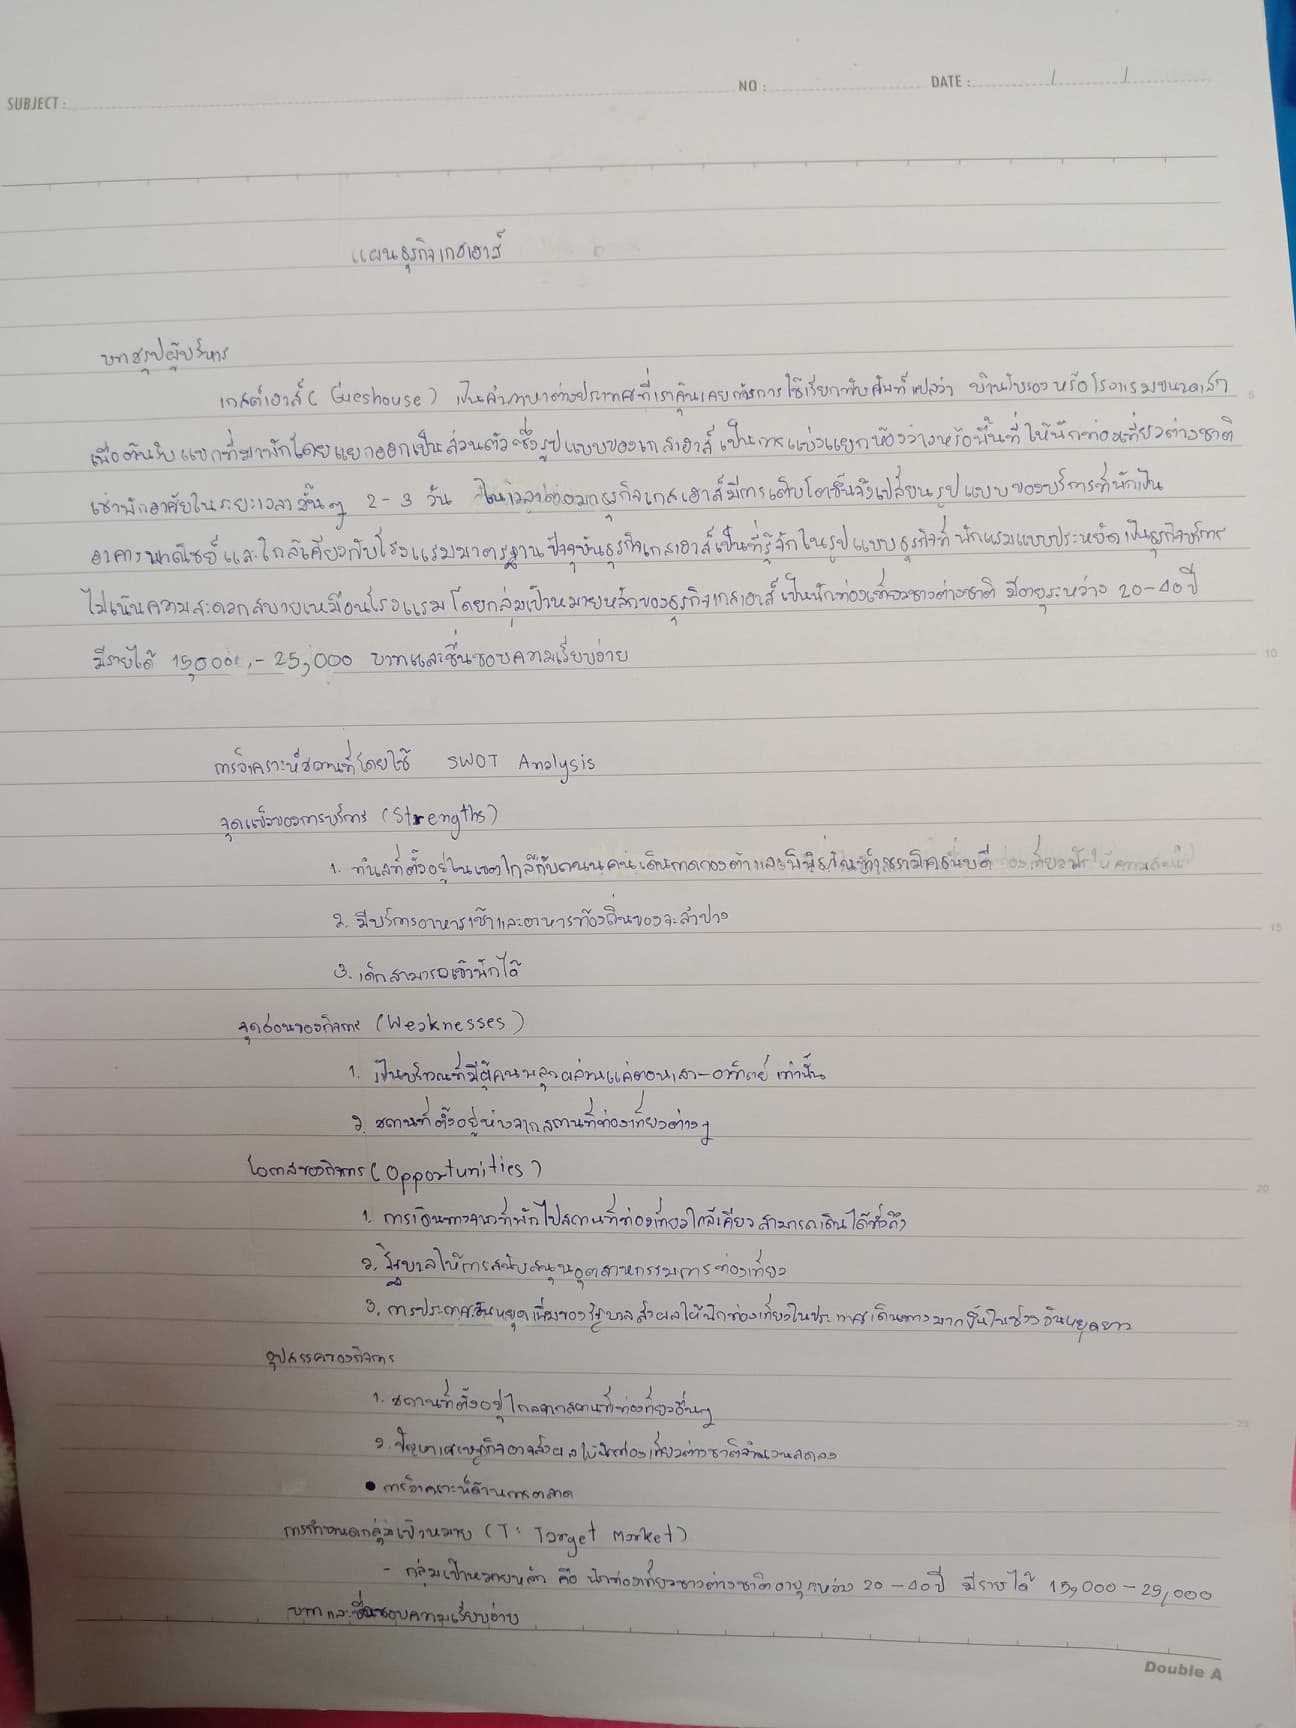 SUBJECT :
NO :
DATE : / /
แผนธุรกิจเกสเฮาส์
บทสรุปผู้บริหาร
เกสต์เฮาส์ ( Gueshouse ) เป็นคำภาษาต่างประเทศที่เราคุ้นเคยการใช้เรียกทับศัพท์แปลว่า บ้านรับรองหรือโรงแรมขนาดเล็ก
5
เพื่อต้นรับแขกที่มาพักโดยแยกออกเป็นส่วนตัวซึ่งรูปแบบของเกสเฮาส์เป็นการแบ่งแยกห้องว่างหรือพื้นที่ให้นักท่องเที่ยวต่างชาติ
เช่าพักอาศัยในระยะเวลาสั้นๆ 2 - 3 วัน ในเวลาต่อมาธุรกิจเกสเฮาส์มีการเติบโตขึ้นจึงเปลี่ยนรูปแบบของบริการที่พักเป็น
อาคารพาณิชย์และใกล้เคียงกับโรงแรมมาตรฐานปัจจุบันธุรกิจเกสเฮาส์เป็นที่รู้จักในรูปแบบธุรกิจที่พักแรมแบบประหยัดเป็นธุรกิจบริการ
ไม่เน้นความสะดวกสบายเหมือนโรงแรม โดยกลุ่มเป้าหมายหลักของธุรกิจเกสเฮาส์เป็นนักท่องเที่ยวชาวต่างชาติ มีอายุระหว่าง 20 - 40 ปี
มีรายได้ 15,000 - 25,000 บาทและชื่นชอบความเรียบง่าย
10
การวิเคราะห์สถานที่โดยใช้ SWOT Analysis
จุดแข็งของการบริการ (Strengths)
1. ทำเลที่ตั้งอยู่ในเขตใกล้กับถนนคนเดินกาดกองต้าและพิพิธภัณฑ์เซรามิคธนบดี
2. มีบริการอาหารเช้าและอาหารท้องถิ่นของจ.ลำปาง
15
3. เด็กสามารถเข้าพักได้
จุดอ่อนของกิจการ (Weaknesses)
1. เป็นบริเวณที่มีผู้คนพลุกพล่านแค่ตอนเสา - อาทิตย์ เท่านั้น
2. สถานที่ตั้งอยู่ห่างจากสถานที่ท่องเที่ยวต่างๆ
โอกาสของกิจการ (Opportunities)
20
1. การเดินทางจากที่พักไปสถานที่ท่องเที่ยวใกล้เคียงสามารถเดินได้ทั่วถึง
2. รัฐบาลให้การสนับสนุนอุตสาหกรรมการท่องเที่ยว
3. การประกาศวันหยุดเพิ่มของรัฐบาลส่งผลให้นักท่องเที่ยวในประเทศเดินทางมากขึ้นในช่วงวันหยุดยาว
อุปสรรคของกิจการ
1. สถานที่ตั้งอยู่ไกลจากสถานที่ท่องเที่ยวอื่นๆ
25
2. ปัญหาเศรษฐกิจอาจส่งผลให้นักท่องเที่ยวต่างชาติจำนวนลดลง
• การวิเคราะห์ด้านการตลาด
การกำหนดกลุ่มเป้าหมาย (T : Target Market)
- กลุ่มเป้าหมายหลัก คือ นักท่องเที่ยวชาวต่างชาติ อายุระหว่าง 20 - 40 ปี มีรายได้ 15,000 - 25,000
บาทและชื่นชอบความเรียบง่าย
Double A